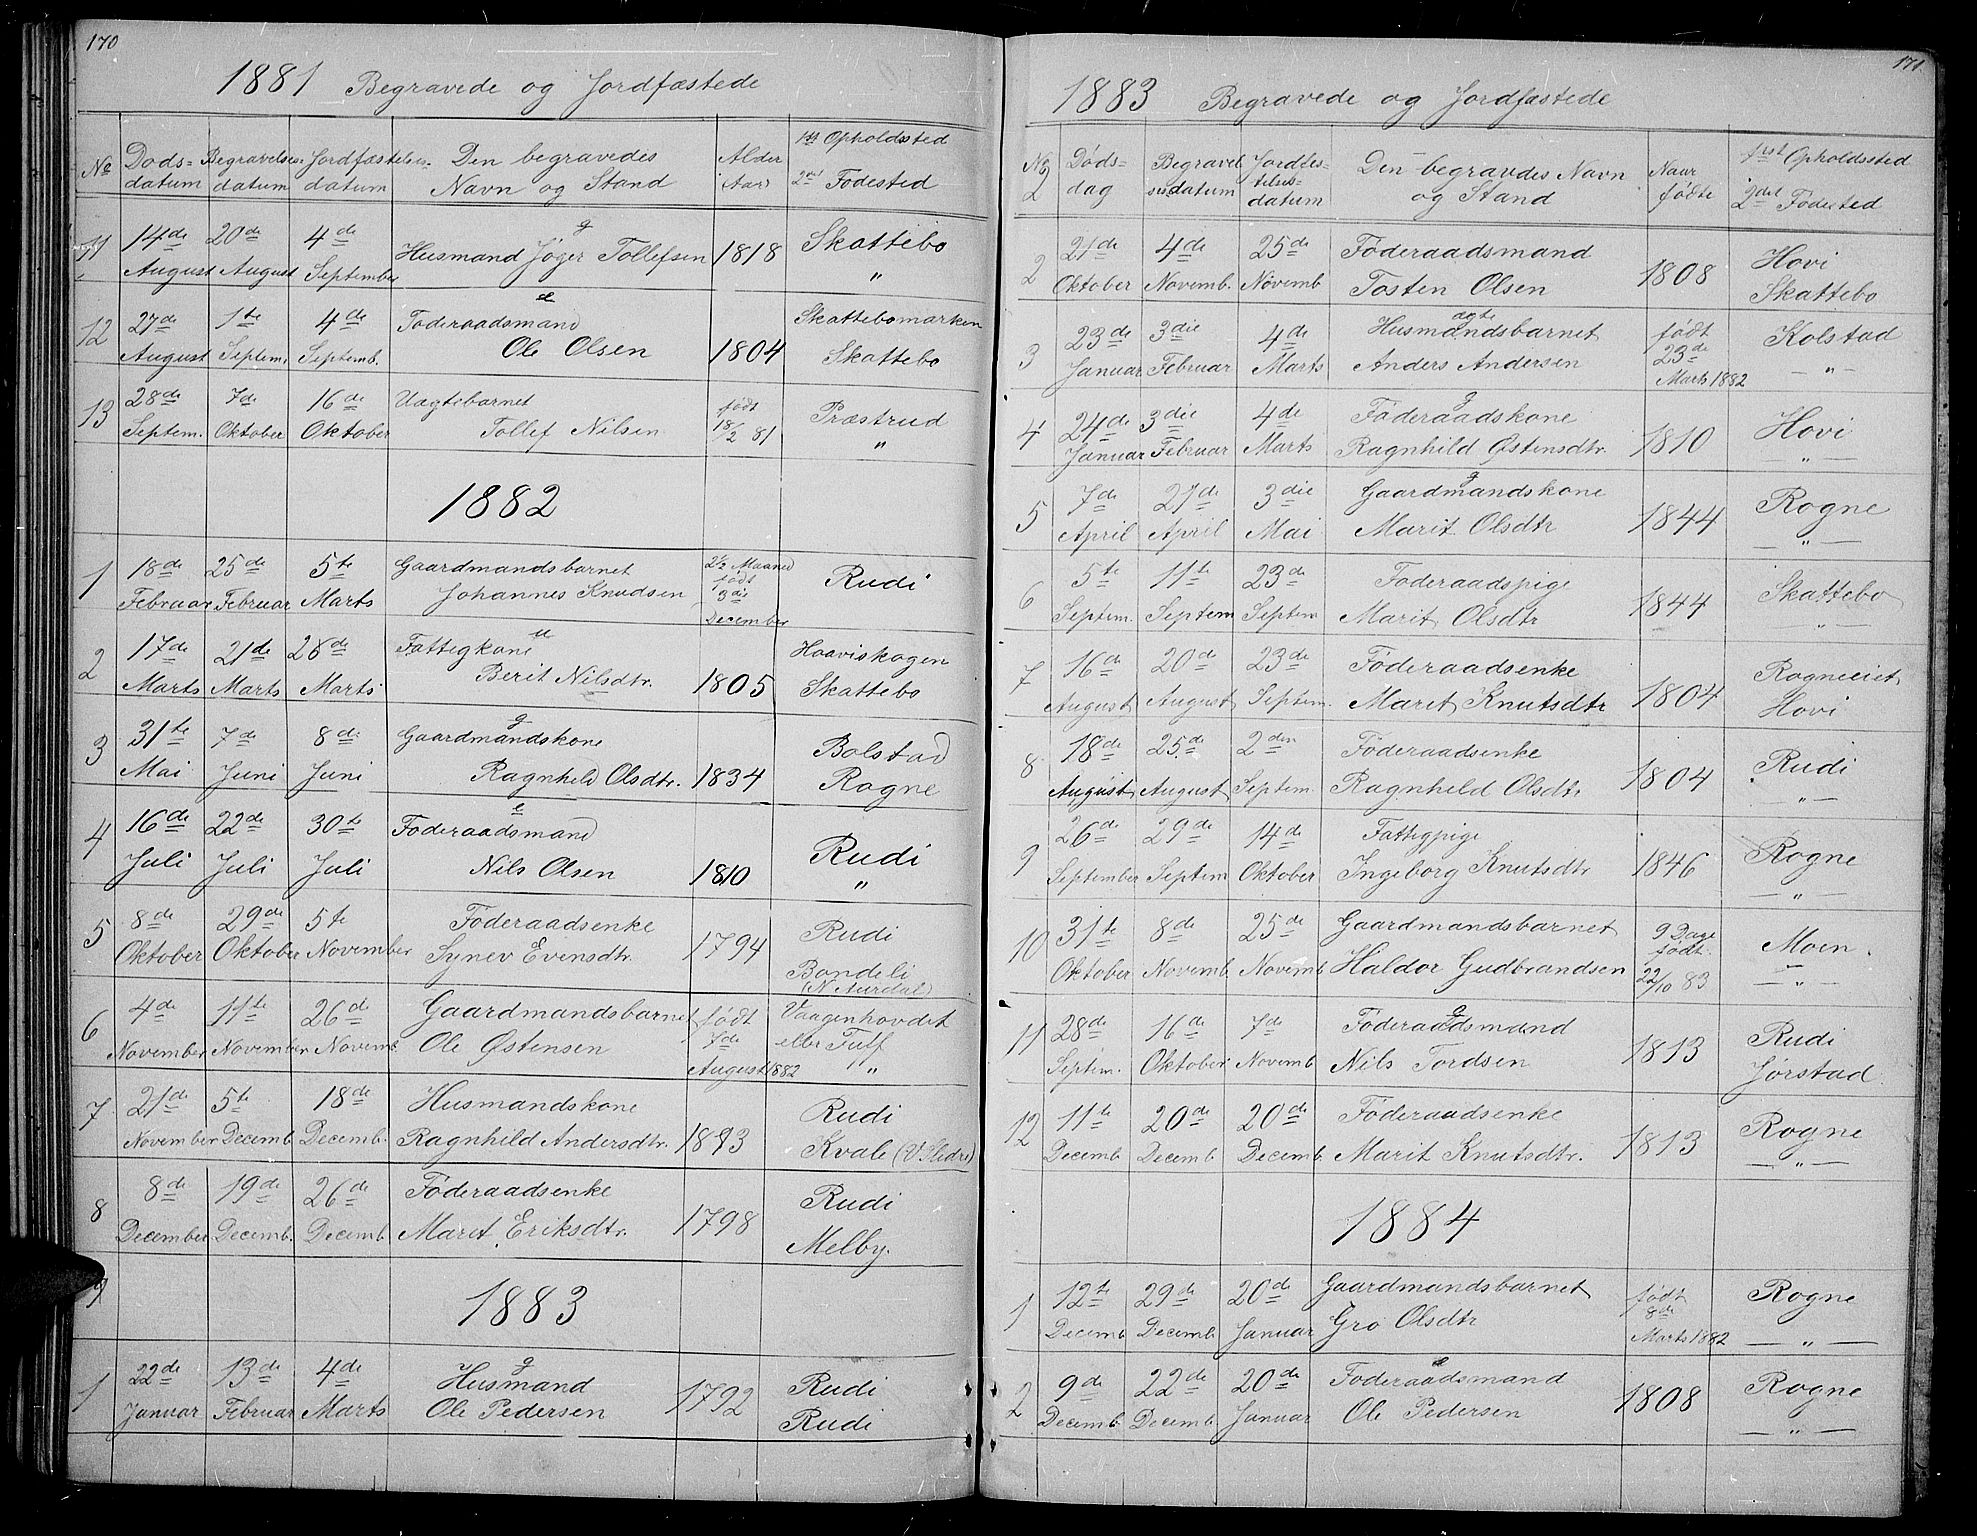 170
1881 Begravede og Jordfæstede
No Døds- Begravelses- Jordfæstelses- Den begravedes Alder 1st Opholdssted
datum datum datum Navn og Stand (Aar) 2det Fødested
11 14de 20de 4de g Skattebo
August August September Husmand Jøger Tollefsen 1818 "
12 27de 1te 4de e Føderaadsmand Skattebomarken
August Septem. Septemb. Ole Olsen 1804 Skattebo
13 28de 7de 16de Uægtebarnet født Præstrud
Septem. Oktober Oktober Tollef Nilsen 18/2 81 "
1882
1 18de 25de 5te Gaardmandsbarnet 2½ Maaned Rudi
Februar Februar Marts Johannes Knudsen født 3die
December
2 17de 21de 28de Fattigkone Haaviskogen
Marts Marts Marts Berit Nilsdtr. 1805 Skattebo
3 31te 7de 8de g Gaardmandskone Bolstad
Mai Juni Juni Ragnhild Olsdtr. 1834 Rogne
4 16de 22de 30te e Føderaadsmand Rudi
Juli Juli Juli Nils Olsen 1810 "
5 8de 29de 5te Føderaadsenke Rudi
Oktober Oktober November Synev Evensdtr. 1794 Bondeli
(N. Aurdal)
6 4de 11te 26de Gaardmandsbarnet født Vaagenhovdet
November November Novemb. Ole Østensen 7de eller Tuff
August 1882 "
7 21de 5te 18de Husmandskone Rudi
November Decemb. Decemb. Ragnhild Andersdtr. 1893 Kvale (V. Slidre)
8 8de 19de 26de Føderaadsenke Rudi
December Decemb. Decemb. Marit Eriksdtr. 1798 Melby.
9 1883
1 22de 13de 4de g Husmand Rudi
Januar Februar Marts Ole Pedersen 1792 Rudi
171.
1883 Begravede og Jordfæstede
No Døds- Begravel- Jordfæs- Den begravedes Navn Naar først Opholdssted
dag sesdatum telses- og Stand fødte 2det Fødested
datum
2 21de 4de 25de Føderaadsmand Hovi
Oktober Novemb. Novemb. Tosten Olsen 1808 Skattebo
3 23de 3die 4de ægte Husmandsbarnet født Kolstad
Januar Februar Marts Anders Andersen 23de — " —
Marts 1882
4 24de 3die 4de g Føderaadskone Hovi
Januar Februar Marts Ragnhild Østensdtr. 1810 — " —
5 7de 27de 3die g Gaardmandskone Rogne
April April Mai Marit Olsdtr 1844 — " —
6 5te 11te 23de Føderaadspige Skattebo
Septem. Septem Septem Marit Olsdtr 1844 — " —
7 16de 20de 23de Føderaadsenke Rogneeiet
August August Septem. Marit Knutsdtr 1804 Hovi
8 18de 25de 2den Føderaadsenke Rudi
August August Septem. Ragnhild Olsdtr 1804 — " —
9 26de 29de 14de Fattigpige Rogne
September Septem Oktober Ingeborg Knutsdtr 1846 — " —
10 31te 8de 25de Gaardmandsbarnet 9 Dage Moen
Oktober Novemb. Novemb Haldor Gudbrandsen født — " —
22/10 83
11 28de 16de 7de g Føderaadsmand Rudi
Septem. Oktober Novemb Nils Tordsen 1813 Jørstad
12 11te 20de 20de Føderaadsenke Rogne
Decemb. Decemb. Decemb. Marit Knutsdtr. 1813 — " —
1884
1 12te 29de 20de Gaardmandsbarnet født Rogne
Decemb Decemb. Januar Gro Olsdtr 8de
Marts 1882 — " —
2 9de 22de 20de e Føderaadsmand Rogne
Decemb. Decemb. Januar Ole Pedersen 1808 — " —